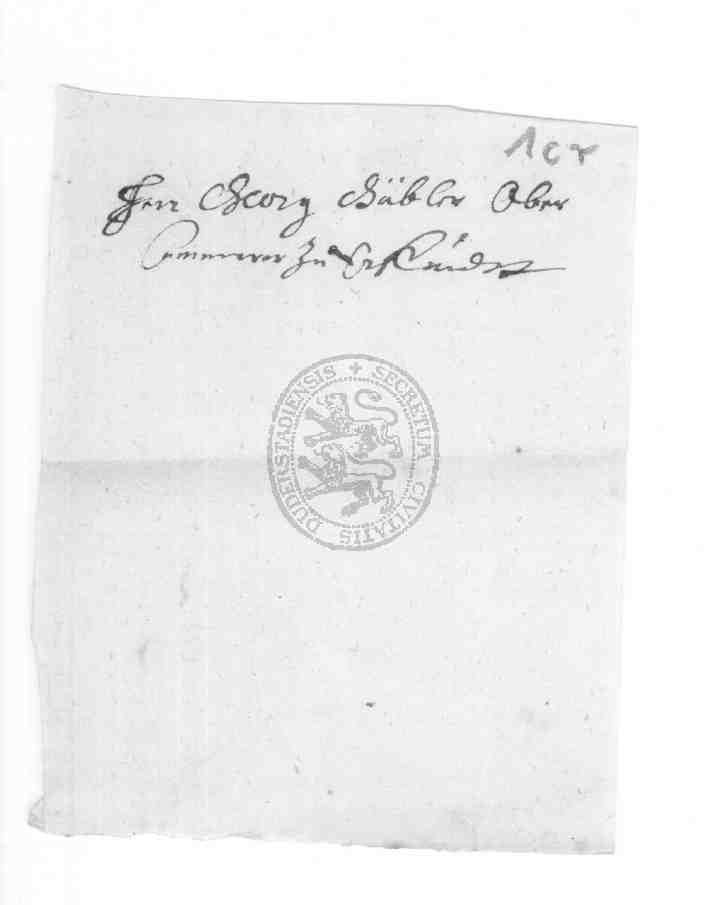 1cr
Herr Georg Gäbler Ober
Cammerer zu
SECRETUM CIVITATIS DUDERSTADIENSIS